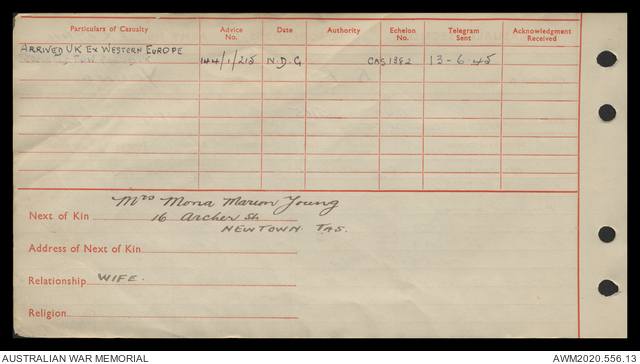 Particulars of Casualty Advice No. Date Authority Echelon No. Telegram Sent Acknowledgment Received
ARRIVED UK EX WESTERN EUROPE
144/1/215 N.D.G CAS 1382 13-6-45
Mrs Mona Marion Young
Next of Kin 16 Archer St
NEWTOWN. TAS.
Address of Next of Kin
Relationship WIFE.
Religion
AUSTRALIAN WAR MEMORIAL AWM2020.556.13